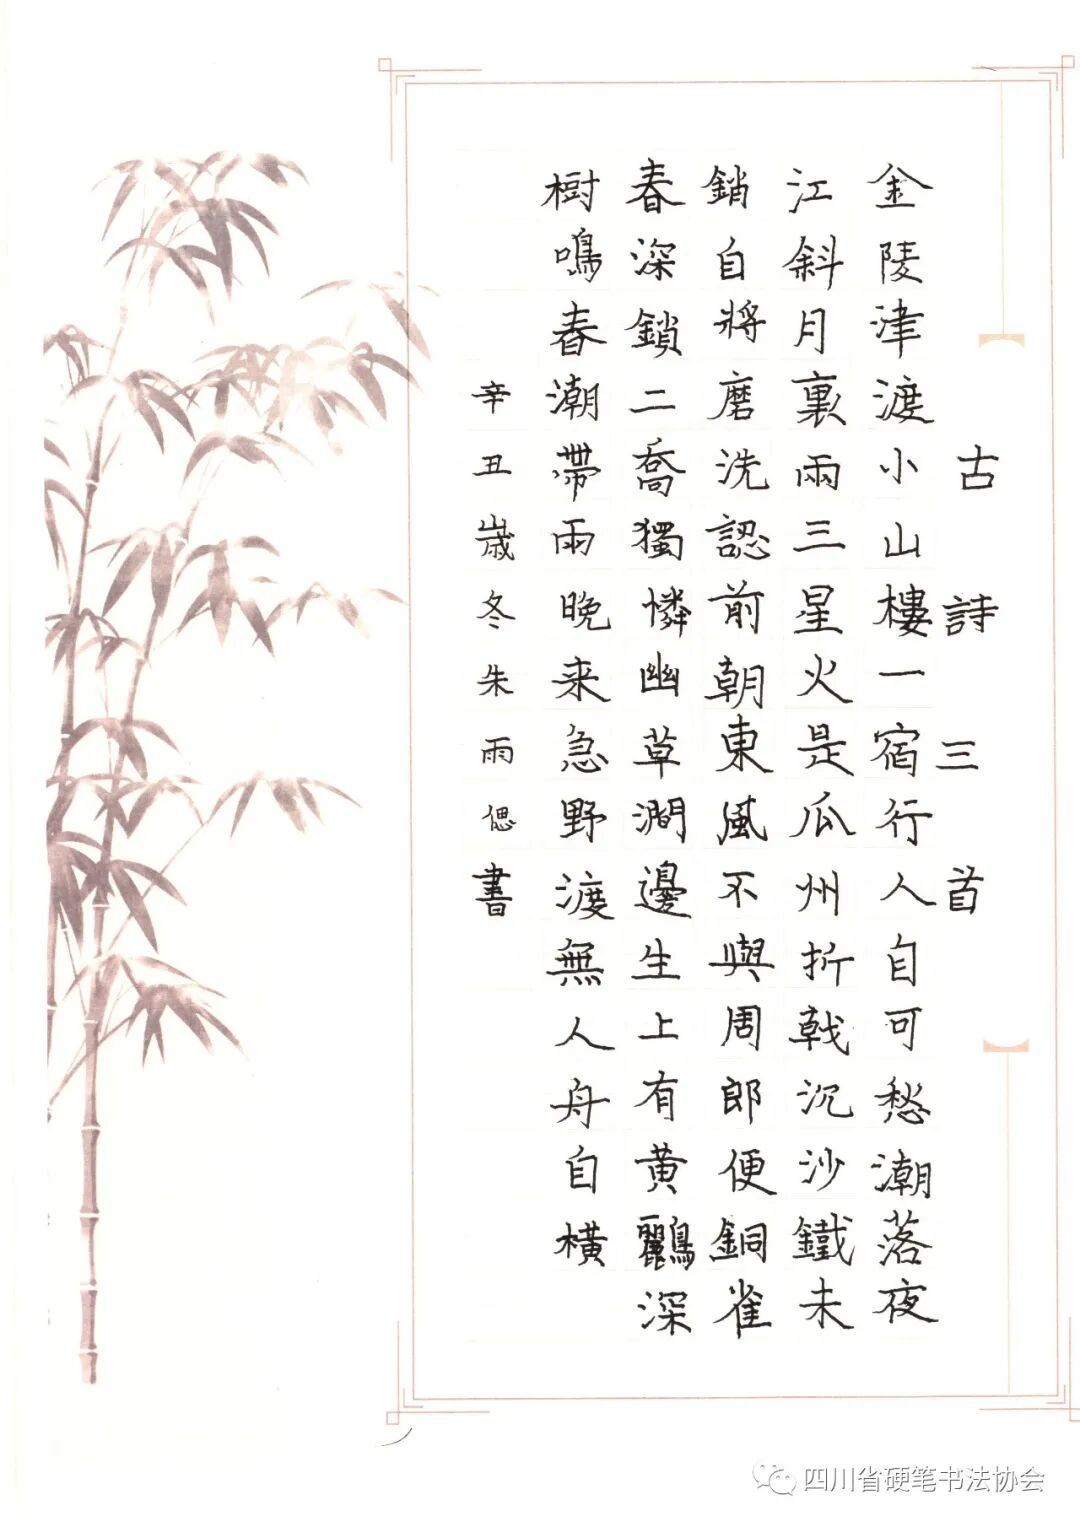 古詩三首
金陵津渡小山樓一宿行人自可愁潮落夜
江斜月裏兩三星火是瓜州折戟沉沙鐵未
銷自將磨洗認前朝東風不與周郎便銅雀
春深鎖二喬獨憐幽草澗邊生上有黄鸝深
樹鳴春潮帶雨晚来急野渡無人舟自横
辛丑歲冬朱雨偲書
四川省硬笔书法协会